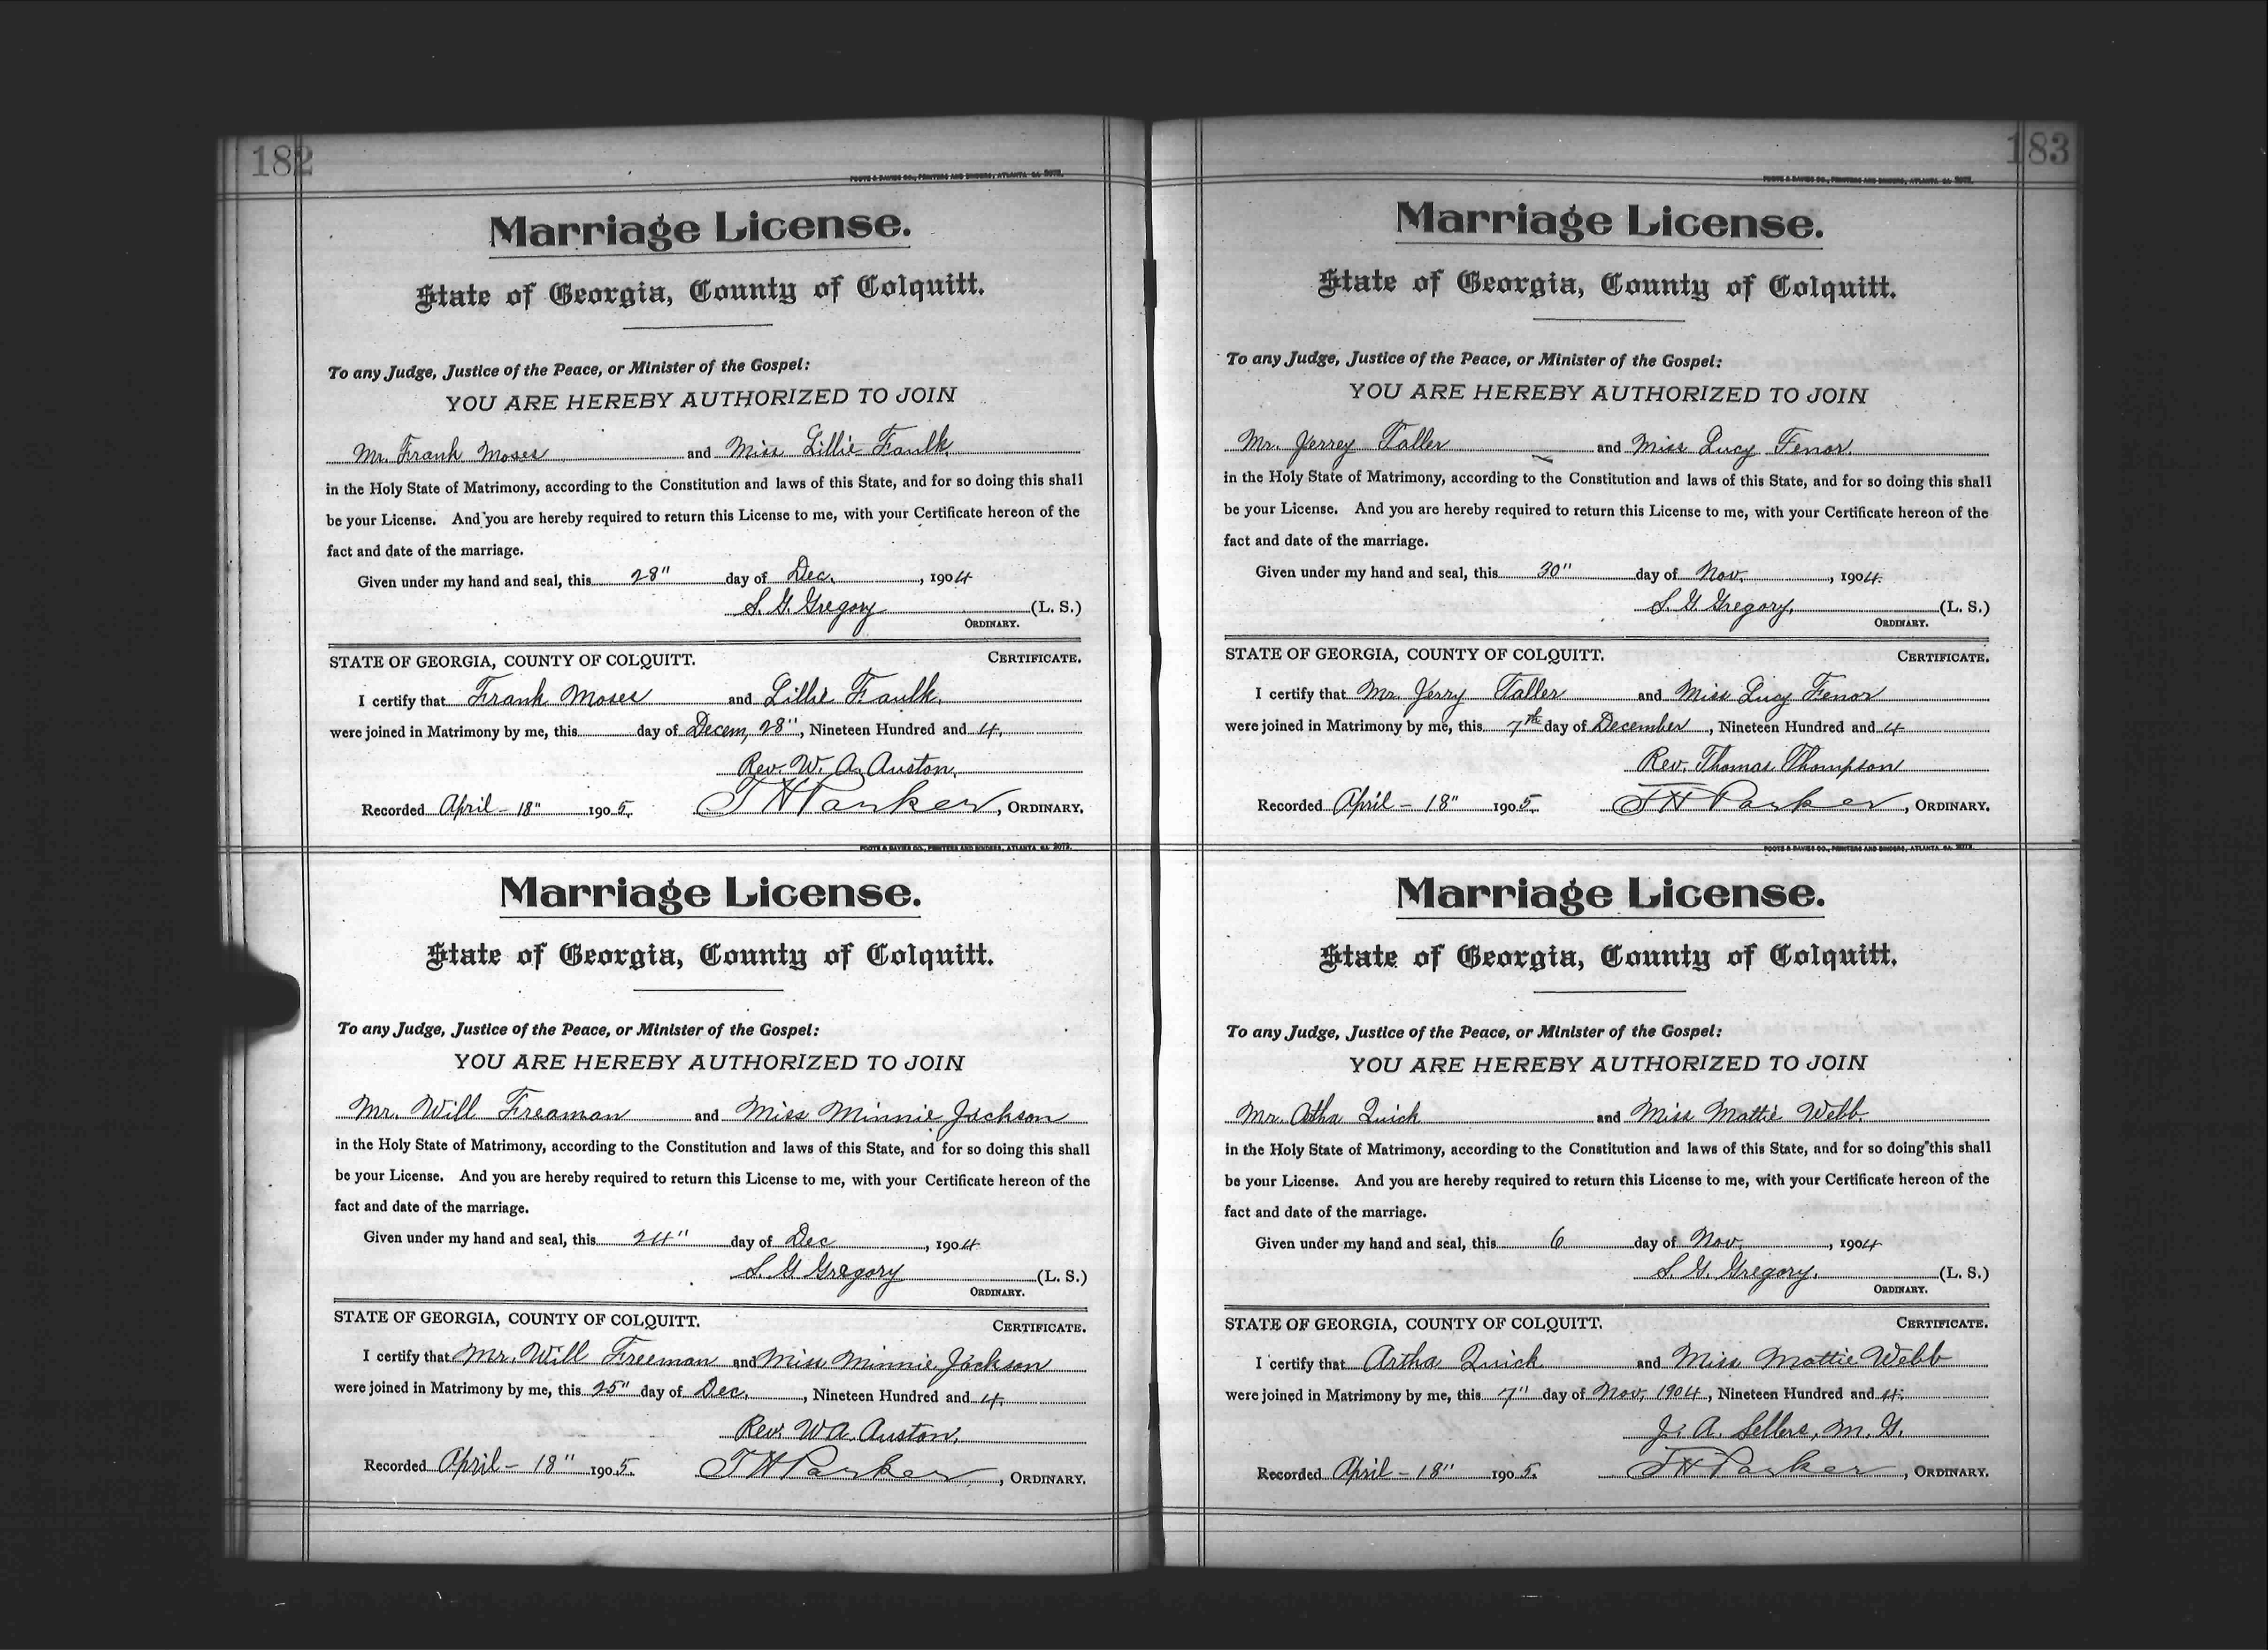 182
FOOTE & DAVIES CO., PRINTERS AND BINDERS, ATLANTA, GA.
Marriage License.
State of Georgia, County of Colquitt.
To any Judge, Justice of the Peace, or Minister of the Gospel:
YOU ARE HEREBY AUTHORIZED TO JOIN
Mr. Frank Moses and Miss Lillie Faulk.
in the Holy State of Matrimony, according to the Constitution and laws of this State, and for so doing this shall
be your License. And you are hereby required to return this License to me, with your Certificate hereon of the
fact and date of the marriage.
Given under my hand and seal, this 28" day of Dec., 1904
S. G. Gregory (L. S.)
ORDINARY.
STATE OF GEORGIA, COUNTY OF COLQUITT. CERTIFICATE.
I certify that Frank Moses and Lillie Faulk.
were joined in Matrimony by me, this day of Decem, 28", Nineteen Hundred and 4.
Rev. W. A. Auston.
Recorded April - 18" 1905. T H Parker, ORDINARY.
FOOTE & DAVIES CO., PRINTERS AND BINDERS, ATLANTA, GA.
Marriage License.
State of Georgia, County of Colquitt.
To any Judge, Justice of the Peace, or Minister of the Gospel:
YOU ARE HEREBY AUTHORIZED TO JOIN
Mr. Will Freaman and Miss Minnie Jackson
in the Holy State of Matrimony, according to the Constitution and laws of this State, and for so doing this shall
be your License. And you are hereby required to return this License to me, with your Certificate hereon of the
fact and date of the marriage.
Given under my hand and seal, this 24" day of Dec, 1904
S. G Gregory (L. S.)
ORDINARY.
STATE OF GEORGIA, COUNTY OF COLQUITT. CERTIFICATE.
I certify that Mr. Will Freeman and Miss Minnie Jackson
were joined in Matrimony by me, this 25" day of Dec., Nineteen Hundred and 4.
Rev. W A. Auston.
Recorded April - 18" 1905. T H Parker, ORDINARY.
183
FOOTE & DAVIES CO., PRINTERS AND BINDERS, ATLANTA, GA.
Marriage License.
State of Georgia, County of Colquitt.
To any Judge, Justice of the Peace, or Minister of the Gospel:
YOU ARE HEREBY AUTHORIZED TO JOIN
Mr. Jerrey Taller and Miss Lucy Fenor.
in the Holy State of Matrimony, according to the Constitution and laws of this State, and for so doing this shall
be your License. And you are hereby required to return this License to me, with your Certificate hereon of the
fact and date of the marriage.
Given under my hand and seal, this 30" day of Nov., 1904.
S. G. Gregory. (L. S.)
ORDINARY.
STATE OF GEORGIA, COUNTY OF COLQUITT. CERTIFICATE.
I certify that Mr. Jerry Taller and Miss Lucy Fenor
were joined in Matrimony by me, this 7th day of December, Nineteen Hundred and 4
Rev. Thomas Thompson
Recorded April - 18" 1905. T H Parker, ORDINARY.
FOOTE & DAVIES CO., PRINTERS AND BINDERS, ATLANTA, GA.
Marriage License.
State of Georgia, County of Colquitt.
To any Judge, Justice of the Peace, or Minister of the Gospel:
YOU ARE HEREBY AUTHORIZED TO JOIN
Mr. Artha Quick and Miss Mattie Webb.
in the Holy State of Matrimony, according to the Constitution and laws of this State, and for so doing this shall
be your License. And you are hereby required to return this License to me, with your Certificate hereon of the
fact and date of the marriage.
Given under my hand and seal, this 6 day of Nov., 1904
S. G. Gregory. (L. S.)
ORDINARY.
STATE OF GEORGIA, COUNTY OF COLQUITT. CERTIFICATE.
I certify that Artha Quick and Miss Mattie Webb
were joined in Matrimony by me, this 7" day of Nov, 1904, Nineteen Hundred and 4.
J. A. Sellers, M. G.
Recorded April - 18" 1905. T H Parker, ORDINARY.